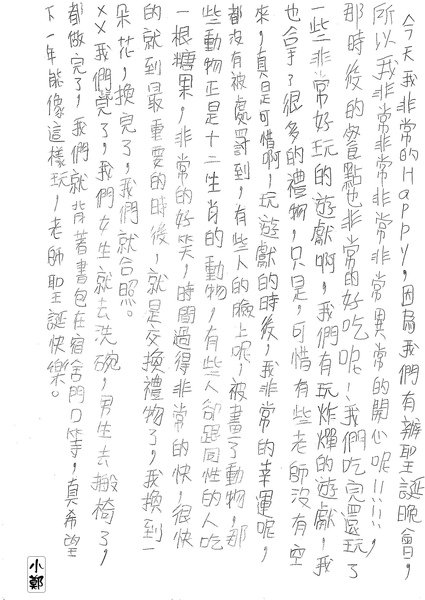 今天我非常的Happy，因為我們有辦聖誕晚會，
所以我非常非常非常非常異常的開心呢！！！！，
那時後的餐點也非常的好吃呢！我們吃完還玩了
一些非常好玩的遊戲啊，我們有玩炸彈的遊戲，我
也合了很多的禮物，只是，可惜有些老師沒有空
來，真是可惜啊，玩遊戲的時後，我非常的幸運呢，
都沒有被處罰到，有些人的臉上呢，被畫了動物，那
些動物正是十二生肖的動物，有些人卻跟同性的人吃
一根糖果，非常的好笑，時間過得非常的快，很快
的就到最重要的時後，就是交換禮物了，我換到一
朵花，換完了，我們就合照。
××我們完了，我們女生就去洗碗，男生去搬椅了，
都做完了，我們就背著書包在宿舍門口等，真希望
下一年能像這樣玩，老師聖誕快樂。
小鄭